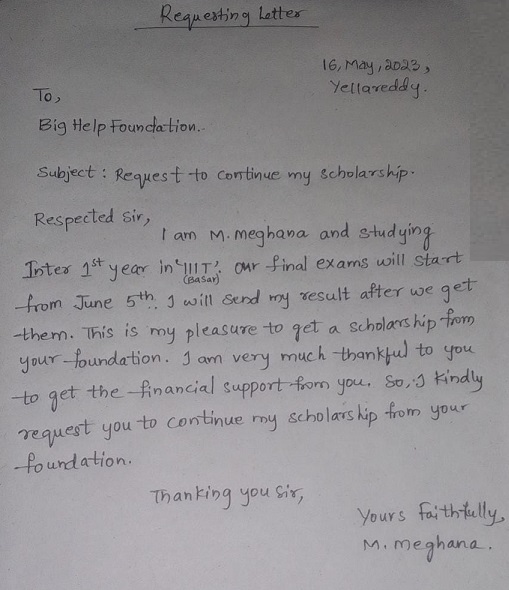 Requesting Letter
16, May, 2023,
Yellareddy.
To,
Big Help Foundation..
Subject : Request to continue my scholarship.
Respected Sir,
I am M. meghana and studying
Inter 1st year in 'IIIT'. our final exams will start
(Basar)
from June 5th. I will send my result after we get
them. This is my pleasure to get a scholarship from
your foundation. I am very much thankful to you
to get the financial support from you. So, I kindly
request you to continue my scholarship from your
foundation.
Thanking you sir,
Yours faithfully,
M. meghana.